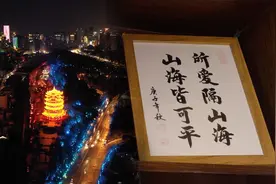 所愛隔山海
山海皆可平
庚子年秋